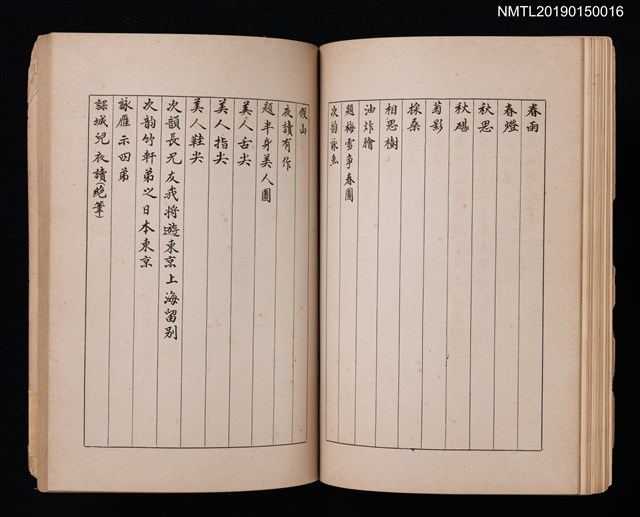 NMTL20190150016
春雨
春燈
秋思
秋碪
菊影
採桑
相思樹
油炸膾
題梅雪爭春圖
次韵詠魚
假山
夜讀有作
題半身美人圖
美人舌尖
美人指尖
美人鞋尖
次韻長兄友我將遊東京上海留別
次韵竹軒弟之日本東京
詠雁示四弟
課城兒夜讀(絶筆)